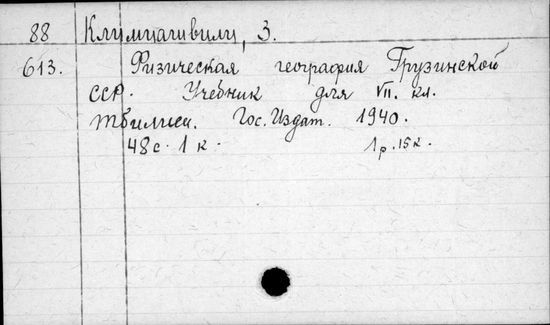 88 Климиашвили, З.
613. Физическая география Грузинской
ССР. Учебник для VII. кл.
Тбилиси. Гос. Издат. 1940.
48 с. 1 к. 1 р. 15 к.